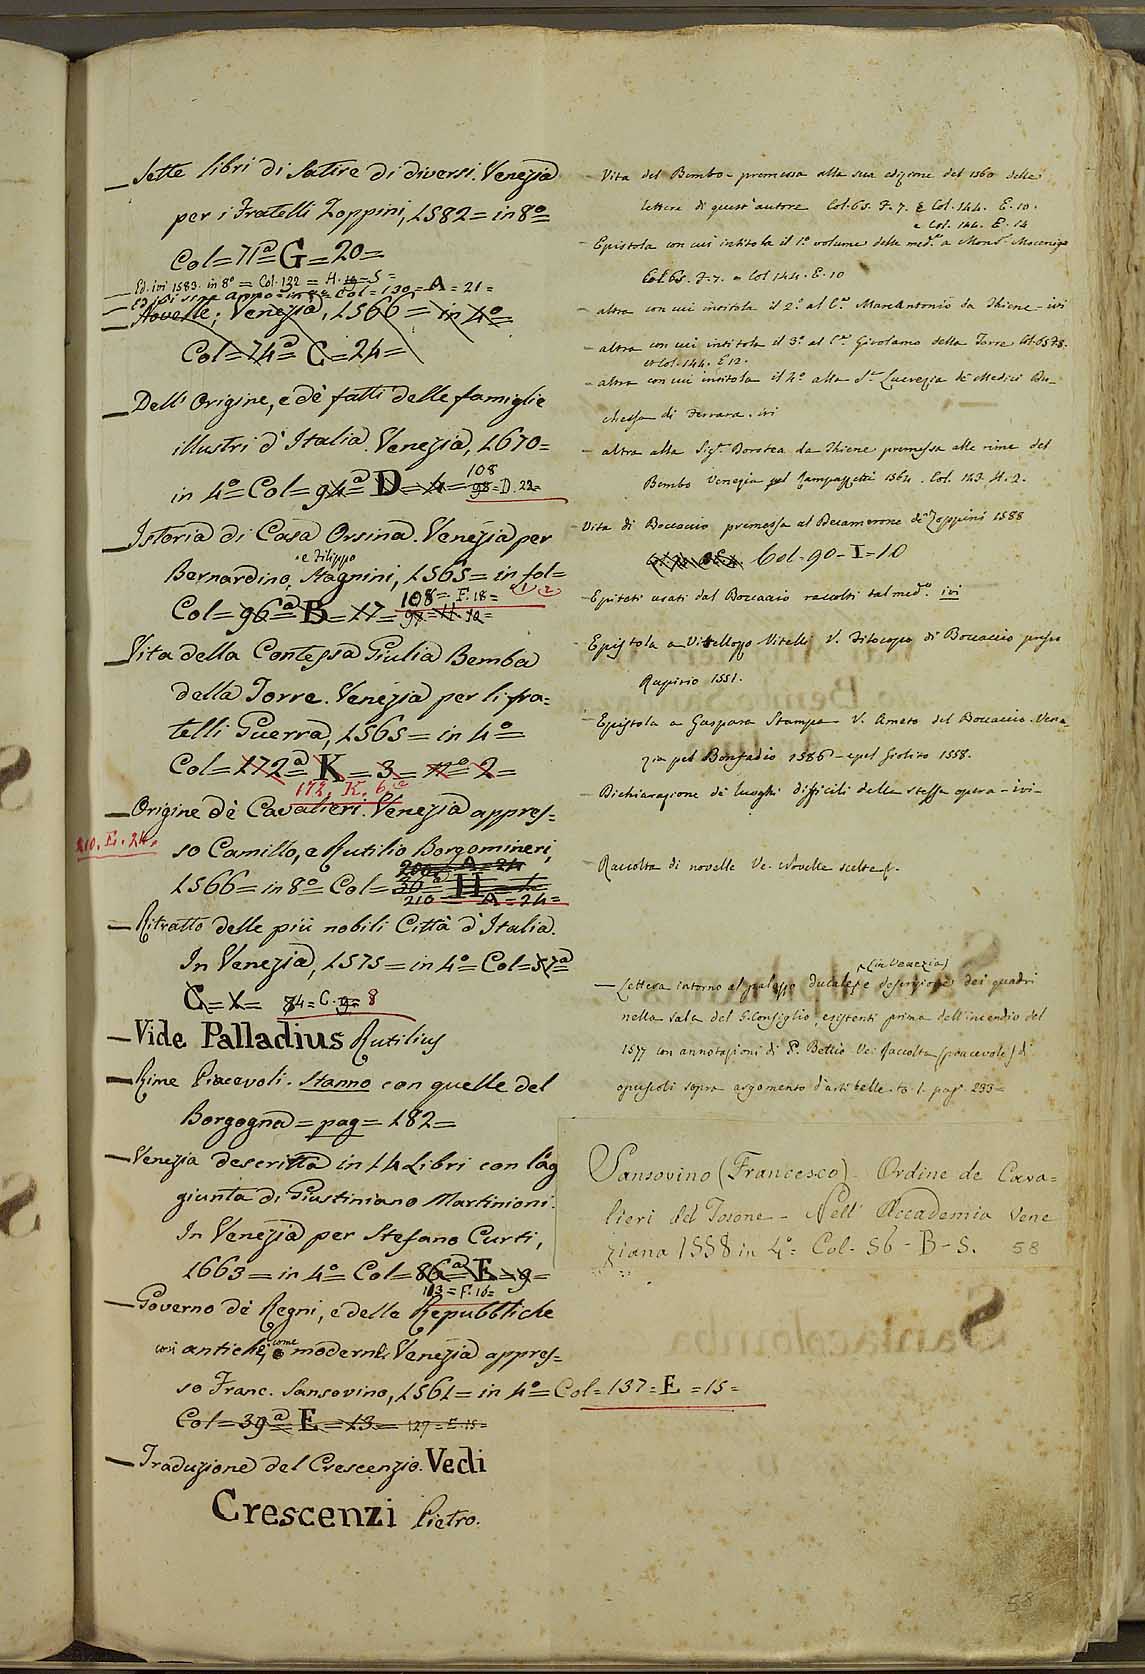 Sette libri di Satire di diversi. Venezia
per i Fratelli Zoppini, 1582 = in 8º
Col = 71ª G = 20 =
Ed. ivi 1583. in 8º = Col. 132 = H. 19 = 5 =
Ed. ivi sine anno = in 8º = Col = 130 = A = 21 =
Novelle; Venezia, 1566 = in 4º =
Col = 74ª C = 24 =
Dell' Origine, e dè fatti delle famiglie
illustri d'Italia. Venezia, 1670 =
108
in 4º Col = 94ª D = 4 = 98 = D. 22 =
Istoria di Casa Orsina. Venezia per
e Filippo
Bernardino, Stagnini, 1565 = in fol =
108 = F. 18 = 1 2
Col = 96ª B = 17 = 97 = H. 12 =
Vita della Contessa Giulia Bemba
della Torre. Venezia per li fra-
telli Guerra, 1565 = in 4º =
Col = 172ª K = 3 = nº 2 =
172. K. 6.
Origine dè Cavalieri. Venezia appres-
210. E. 24.
so Camillo, e Rutilio Borgomineri,
200 A = 24
1566 = in 8º Col = 30ª H = 1
210 = A = 24 =
Ritratto delle più nobili Città d'Italia.
In Venezia, 1575 = in 4º Col = 57ª
C = 1 = 74 = C. 9 = 8
Vide Palladius Rutilius
Rime Piacevoli. Stanno con quelle del
Borgogna = pag = 182 =
Venezia descritta in 14 Libri con l'ag
giunta di Giustiniano Martinioni.
In Venezia per Stefano Curti,
1663 = in 4º Col = 86ª E = 9 =
113 = F. 16 =
Governo dè Regni, e delle Repubbliche
così antiche, come moderne. Venezia appres-
so Franc. Sansovino, 1561 = in 4º = Col = 137 = E = 15 =
Col = 39ª E = 13 = 127 = E. 15 =
Traduzione del Crescenzio. Vedi
Crescenzi Pietro.
Vita del Bembo - premessa alla sua edizione del 1560 delle
lettere di quest'autore Col. 65. F. 7. e Col. 144. E. 10.
e Col. 144. E. 14
Epistola con cui intitola il 1º volume delle med.e a Mons.r Mocenigo
Col. 65. F. 7. e Col 144. E. 10
altra con cui intitola il 2º al C.te Marcantonio da Thiene - ivi
altra con cui intitola il 3º al C.te Girolamo della Torre Col. 65 F. 8.
et Col. 144. E 12.
altra con cui intitola il 4º alla S.ra Lucrezia de Medici Du-
chessa di Ferrara. ivi
altra alla Sig.ra Dorotea da Thiene premessa alle rime del
Bembo Venezia pel Rampazzetti 1564. Col. 143. H. 2.
Vita di Boccaccio premessa al Decamerone de' Zoppini 1588
Col - 90 - I = 10
Epiteti usati dal Boccaccio raccolti dal med.o ivi
Epistola a Vitellozzo Vitelli V. Filocopo di Boccaccio presso
Rapirio 1551.
Epistola a Gaspara Stampa V. Ameto del Boccaccio. Vene
zia pel Bonfadio 1586 - e pel Giolito 1558.
Dichiarazione de luoghi difficili della stessa opera - ivi -
Raccolta di novelle Ve. Novelle scelte
(in Venezia)
Lettera intorno al palazzo ducale, e descrizione dei quadri
nella sala del G. Consiglio, esistenti prima dell'incendio del
1577 con annotazioni di P. Bettio Ve: Raccolta (piacevole) di
opuscoli sopra argomento d'arti belle to. 1. pag. 233 =
Sansovino (Francesco). Ordine de Cava=
lieri del Tosone - Nell' Accademia Vene
ziana 1558 in 4º = Col - 56 - B - 5. 58
58